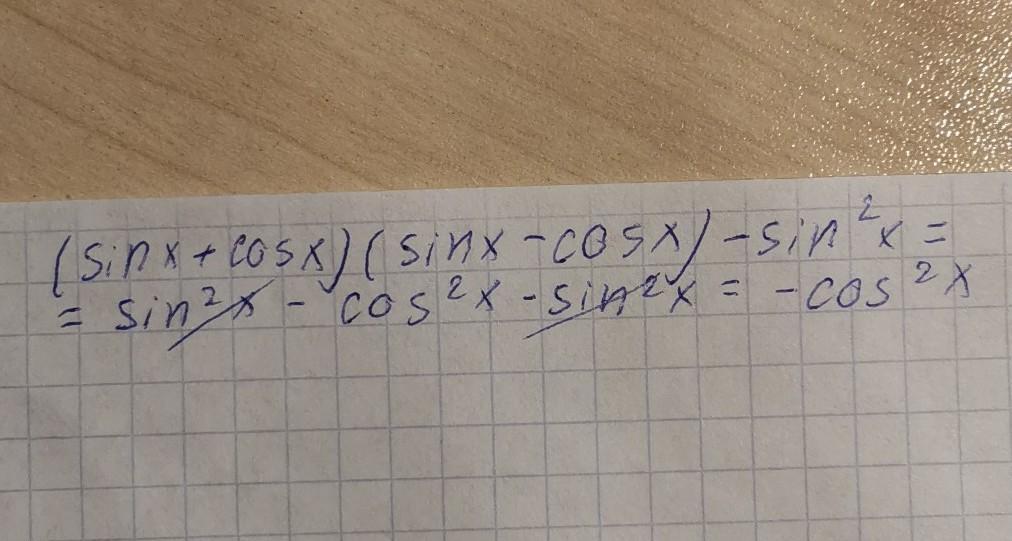 (sinx+cosx)(sinx-cosx)-sin²x=
= sin²x - cos²x -sin²x = -cos²x